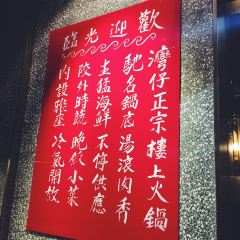 歡迎光臨
灣仔正宗樓上火鍋
馳名鍋底湯滾肉香
生猛海鮮不停供應
郊外時蔬晚飯小菜
內設雅座冷氣開放